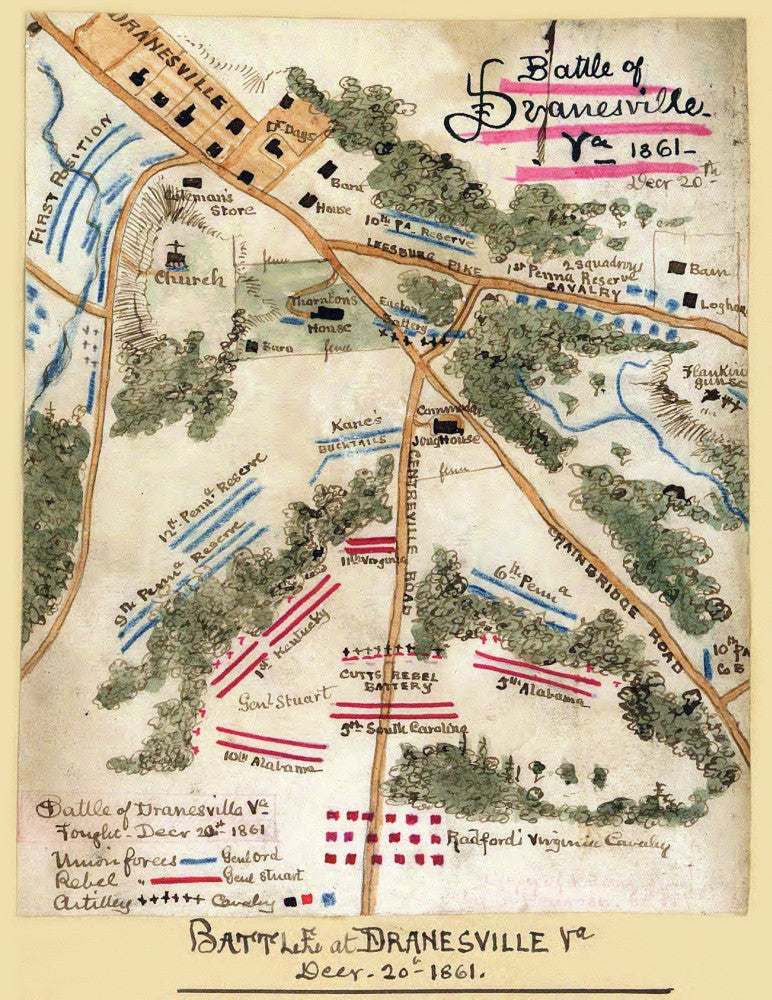 Battle of
Dranesville
Va 1861-
Decr 20th
DRANESVILLE
Dr Days
FIRST POSITION
Coleman's
Store
Barn
House
10th PA. Reserve
LEESBURG PIKE
2 Squadrons
1st Penna Reserve
CAVALRY
Barn
Church
fence
Thornton's
House
Easton's
Battery
Barn
fence
Flanking
guns
Kane's
BUCKTAILS
House
fence
CENTREVILLE ROAD
12th Penna Reserve
9th Penna Reserve
11th Virginia
CHAINBRIDGE ROAD
6th Penna
1st Kentucky
10th PA
Co B
CUTTS REBEL
BATTERY
5th Alabama
Genl Stuart
9th South Carolina
10th Alabama
Battle of Dranesville Va
Fought - Decr 20th 1861
Radford's Virginia Cavalry
Union forces Genl Ord
Rebel " Genl Stuart
Artillery Cavalry
BATTLE at DRANESVILLE Va
Decr. 20th 1861.